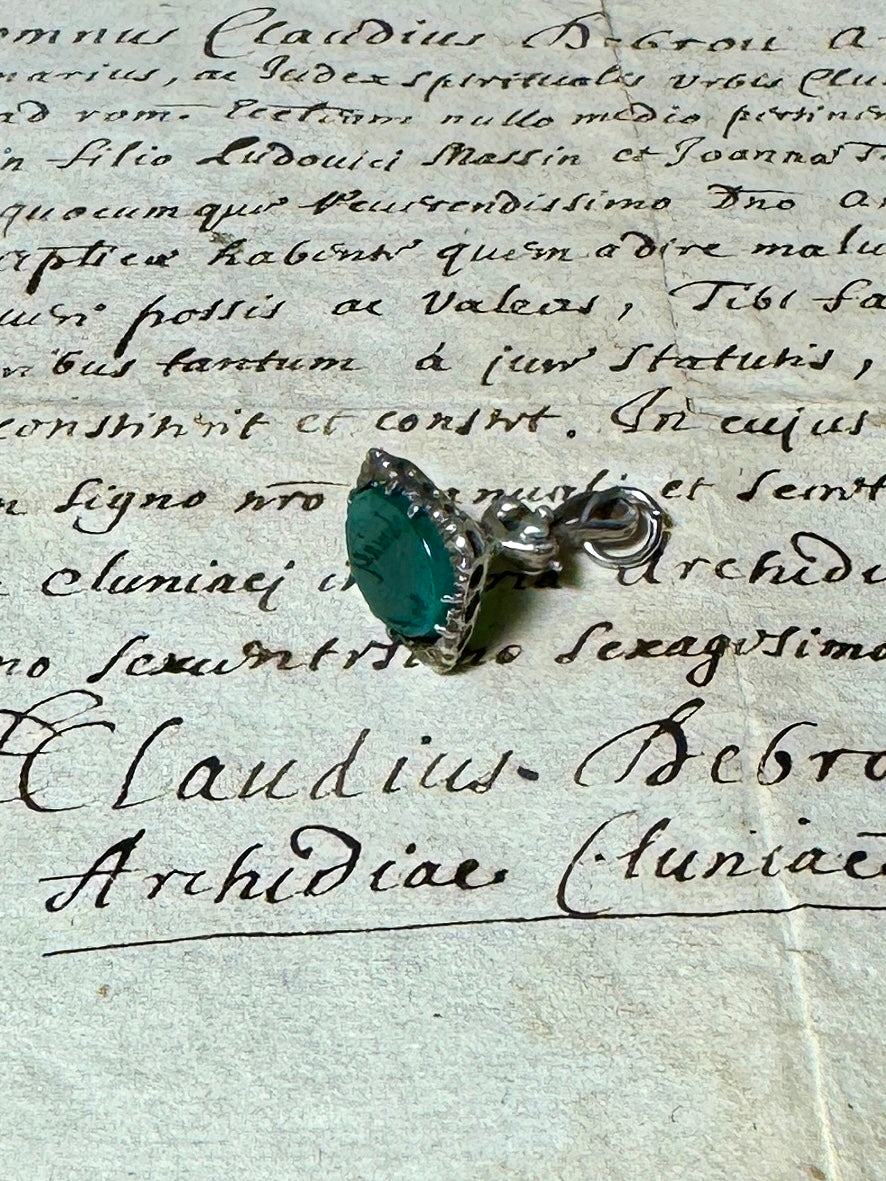 omnus Claudius Debrou A
narius, ac Judex spiritualis urbis Clu
ad rom. Ecclesiam nullo medio pertinen
in filio Ludovici Massin et Joanna
quocumque Reverendissimo Dno
habente quem adire malu
possis ac Valeas, Tibi fa
tantum à jure Statutis,
constiterit et constet. In cujus
signo nro manuali et
Cluniacj Archidi
no sexagesimo
Claudius Debro
Archidiac Cluniac